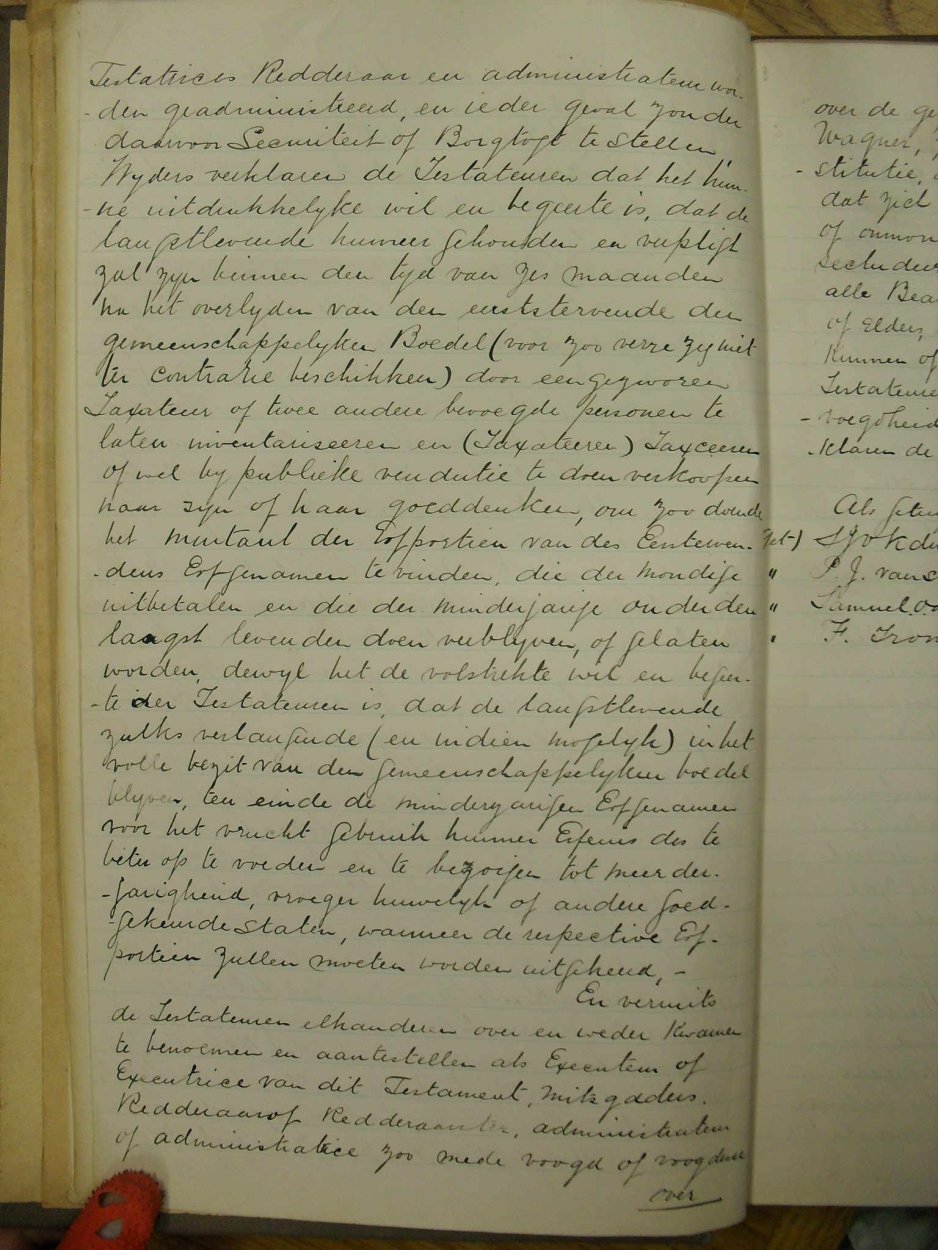 Testatrices Redderaar en administrateur wor-
-den geadministreerd, en ieder geval zonder
daarvoor Securiteit of Borgtogt te stellen,
Wyders verklaren de Testateuren dat het hun-
-ne uitdrukkelyke wil en begeerte is, dat de
langstlevende hunner gehouden en verpligt
zal zyn binnen den tyd van zes maanden
na het overlyden van den eerststervende den
gemeenschappelyken Boedel (voor zoo verre zy niet
ter contrarie beschikken) door een gezworen
Taxateur of twee andere bevoegde personen te
laten inventariseeren en (Taxateeren) Taxeeren
of wel by publieke vendutie te doen verkoopen
naar zyn of haar goeddenken, om zoo doende
het montant der Erfportien van des Eerstewen-
-dens Erfgenamen te vinden, die der mondige
uitbetalen en die der minderjarige onder den
laagst levenden doen verblyven, of gelaten
worden, dewyl het de volstrekte wil en begeer-
-te der Testateuren is, dat de langstlevende
zulks verlangende (en indien mogelyk) in het
volle bezit van den gemeenschappelyken boedel
blyven, ten einde de minderyarigen Erfgenamen
voor het vrucht gebruik hunner Erfenis des te
beter op te voeden en te bezorgen tot meerder-
-jarigheid, vroeger huwelyk of andere goed-
-gekeurde Staten, wanneer de respective Erf-
portien zullen moeten worden uitgekeerd, -
En vermits
de Testateuren elkanderen over en weder Kwamen
te benoemen en aantestellen als Executeur of
Executrice van dit Testament, mitsgaders.
Redderaar of Redderaarster, administrateur
of administratice zoo mede voogd of voogdesse
over
over de
Wagner,
- stitutie,
dat zich
of onmon
secludeer
alle
of Elders,
Kunnen of
Testateure
- voegdheid
-klaren de
Als
get-)
" P. J. van
" Samuel
" F.